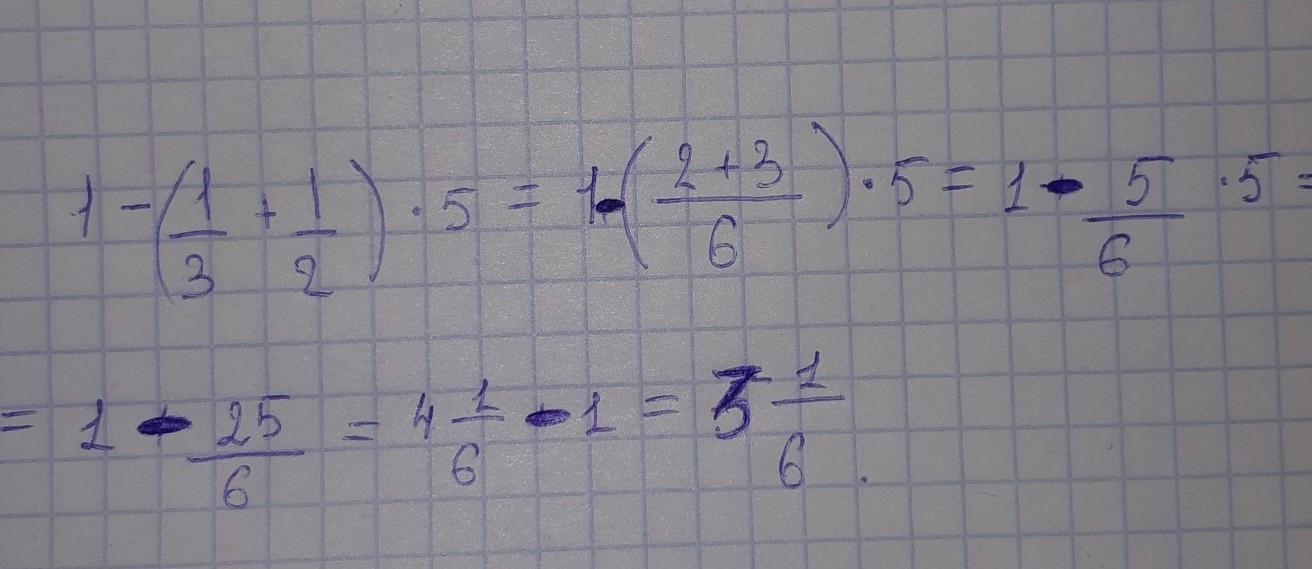 1 - (1/3 + 1/2) · 5 = 1 - ((2+3)/6) · 5 = 1 - 5/6 · 5 =
= 1 - 25/6 = 4 1/6 - 1 = 3 1/6 .